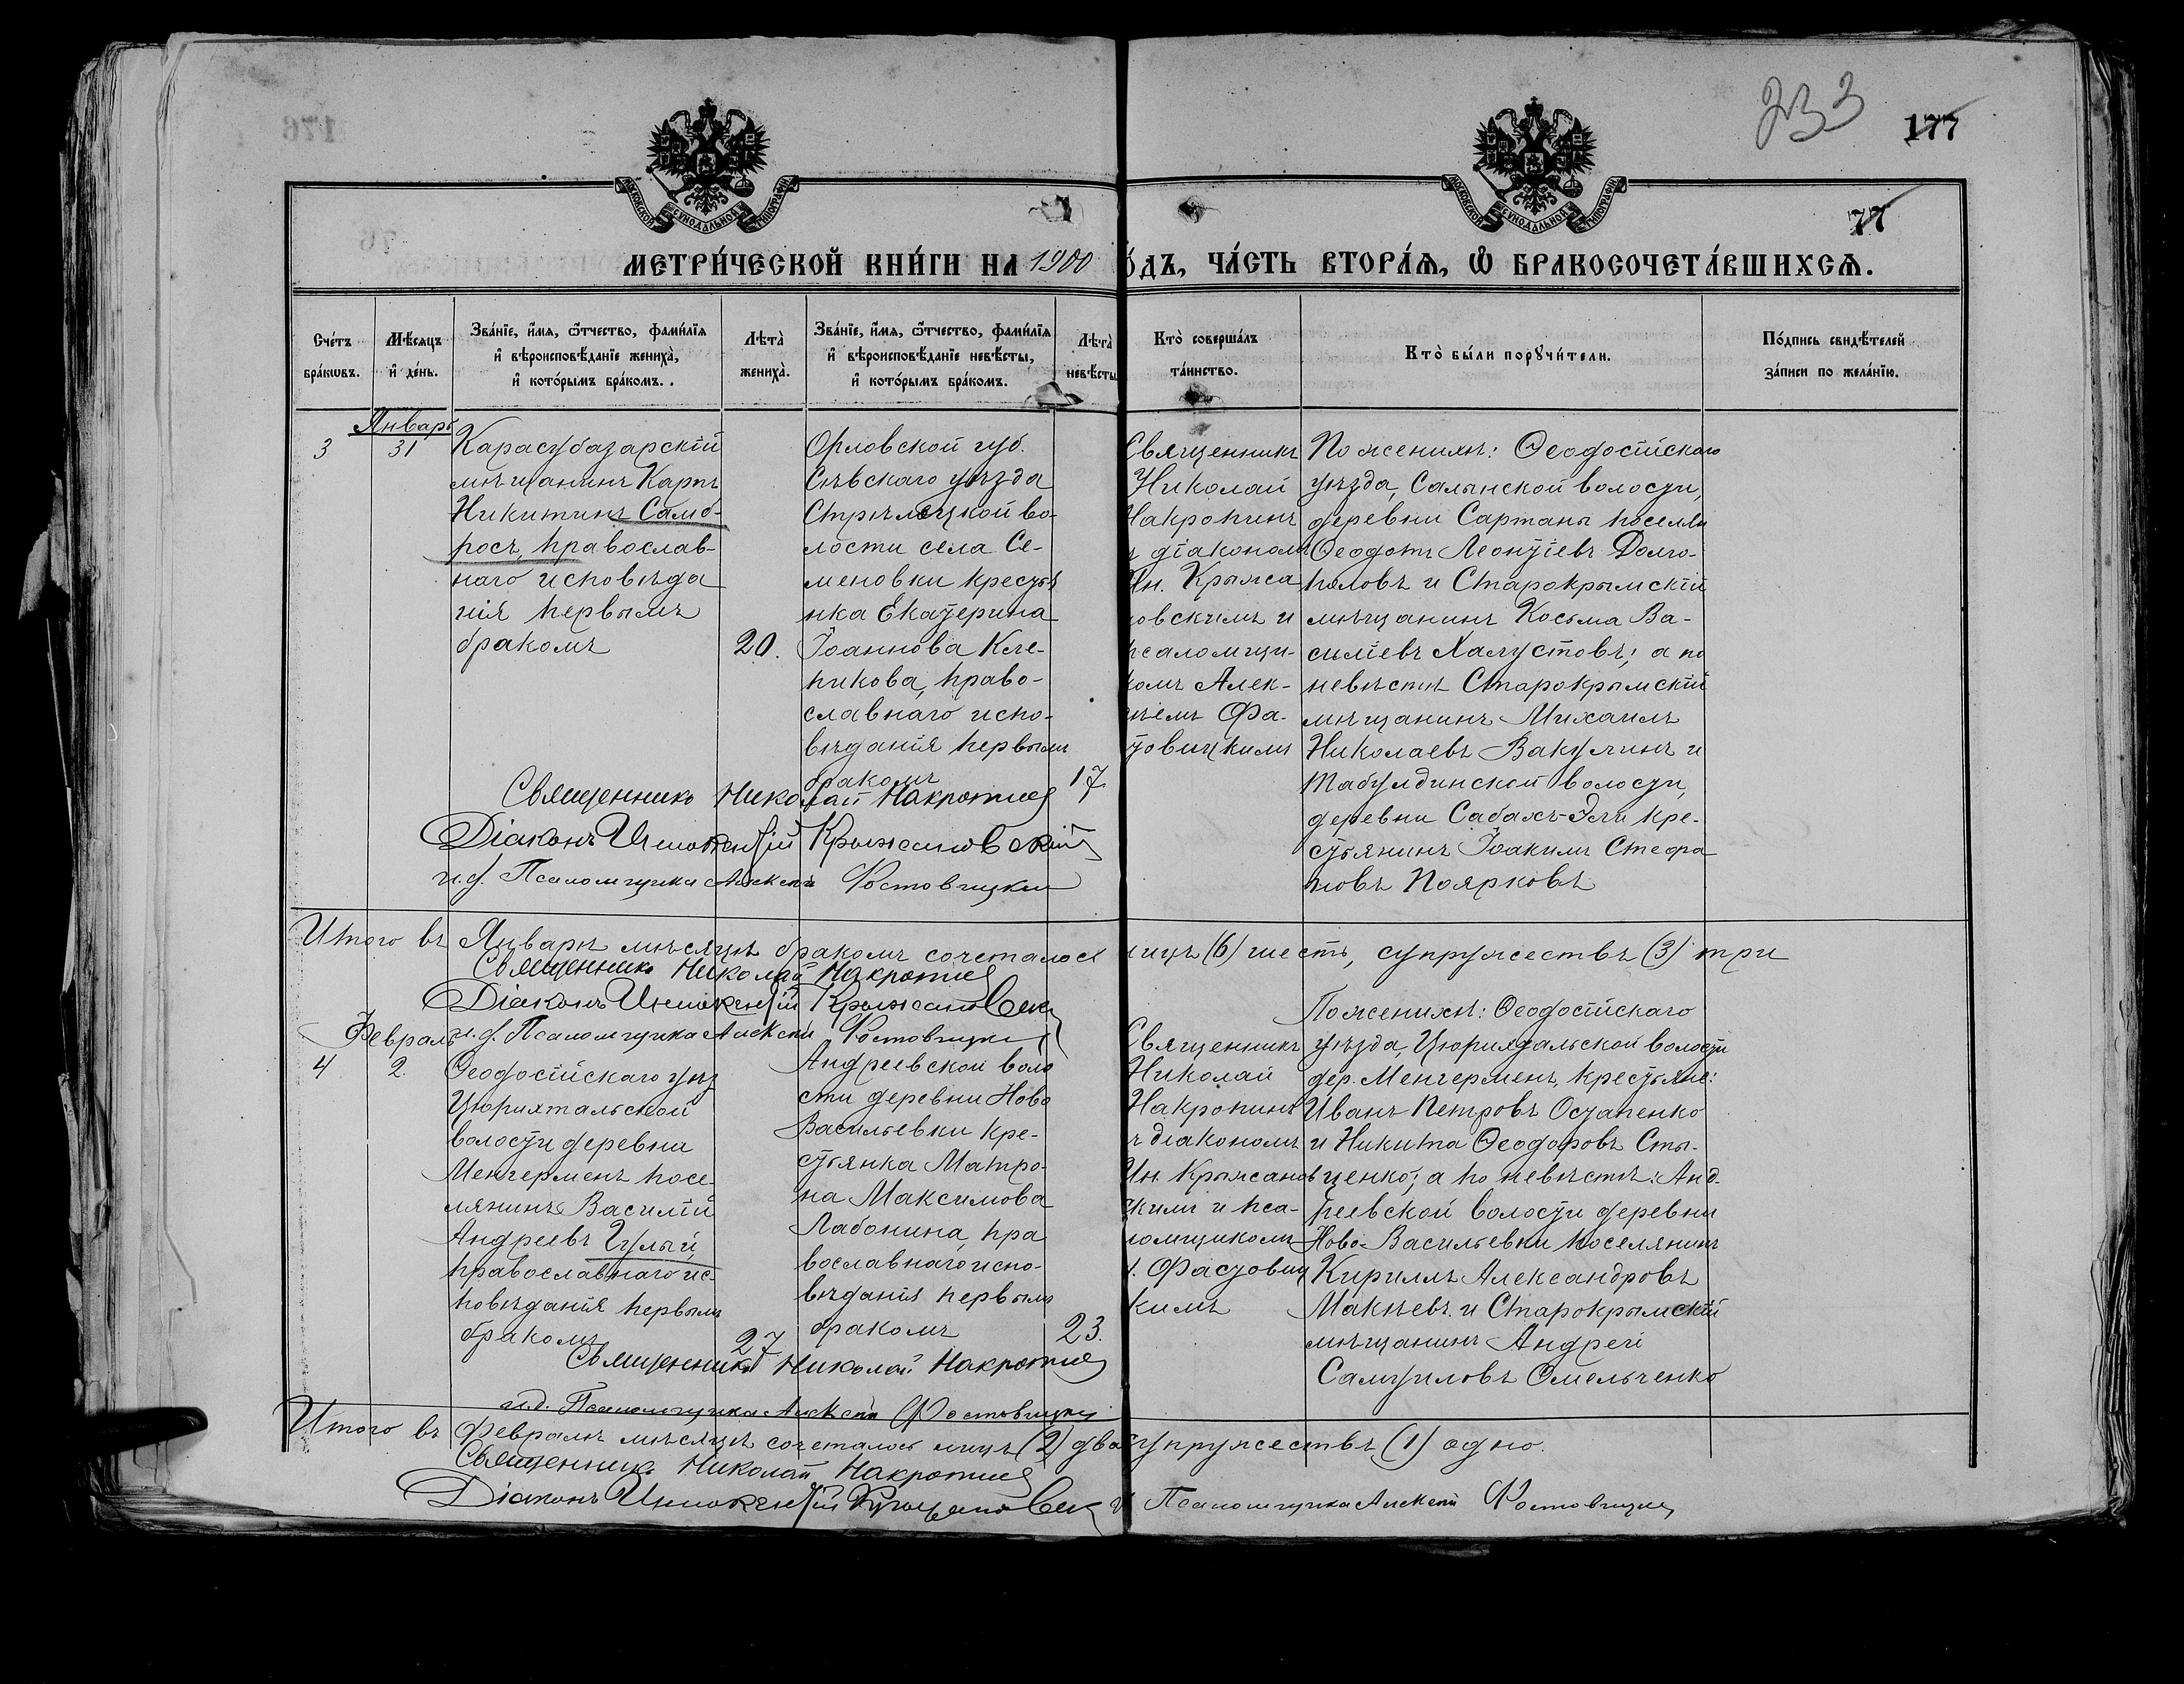 233
177
77
МОСКОВСКОЙ СѴНОДАЛЬНОЙ ТИПОГРАФІИ
МОСКОВСКОЙ СѴНОДАЛЬНОЙ ТИПОГРАФІИ
МЕТРИ́ЧЕСКОЙ КНИ́ГИ НА 1900
О́ДЪ, ЧА́СТЬ ВТОРА́Ѧ, Ѽ БРАКОСОЧЕТА́ВШИХСѦ.
Сче́тъ бра́кѡвъ.
Мѣ́сѧцъ и҆ де́нь.
Зва́нїе, и҆́мѧ, ѻ҆́тчество, фами́лїѧ
и҆ вѣроисповѣ́данїе жениха̀,
и҆ кото́рымъ бра́комъ.
Лѣта̀ жениха̀.
Зва́нїе, и҆́мѧ, ѻ҆́тчество, фами́лїѧ
и҆ вѣроисповѣ́данїе невѣ́сты,
и҆ кото́рымъ бра́комъ.
Лѣта̀ невѣ́сты
Кто̀ соверша́лъ
та́инство.
Кто̀ бы́ли порꙋчи́тели.
По́дпись свидѣ́телей
за́писи по жела́нїю.
Январь
3
31
Карасубазарскій
мѣщанинъ Карпъ
Никитинъ Самб-
росъ, православ-
наго исповѣда
нія первымъ
бракомъ
20.
Орловской губ.
Сѣвскаго уѣзда
Стрѣлецкой во-
лости села Се-
меновки крестья
нка Екатерина
Іоаннова Кле-
пикова, право-
славнаго испо-
вѣданія первымъ
бракомъ
17
Священникъ
Николай
Накропинъ
ъ діакономъ
Ин. Крыжа
новскимъ и
псаломщи-
комъ Алек-
ѣемъ Фа-
товицкимъ
По женихѣ: Ѳеодосійскаго
уѣзда, Салынской волости,
деревни Сартаны поселян
Ѳеодотъ Леонтіевъ Долго-
половъ и Старокрымскій
мѣщанинъ Косьма Ва-
силіевъ Халустовъ; а по
невѣстѣ Старокрымскій
мѣщанинъ Михаилъ
Николаевъ Вакулинъ и
Табулдинской волости,
деревни Сабахъ-Эли кре-
стьянинъ Іоакимъ Стефа
новъ Поярковъ
Священникъ Николай Накропинъ
Діаконъ Иннокентій Крыжановскій
и.д. Псаломщика Алексѣй Фастовицкій
Итого въ Январѣ мѣсяцѣ бракомъ сочеталось
лицъ (6) шесть, супружествъ (3) три
Священникъ Николай Накропинъ
Діаконъ Иннокентій Крыжановскій
и.д. Псаломщика Алексѣй Фастовицкій
Февраль
4
2.
Ѳеодосійскаго уѣз
Цюрихтальской
волости деревни
Менгерменъ посе-
лянинъ Василій
Андреевъ Гулый,
православнаго ис-
повѣданія первымъ
бракомъ
27
Андреевской воло
сти деревни Ново
Васильевки кре-
стьянка Матро-
на Максимова
Лабонина, пра
вославнаго испо-
вѣданія первымъ
бракомъ
23.
Священникъ
Николай
Накропинъ
ъ діакономъ
Ин. Крыжанов
скимъ и пса-
ломщикомъ
А. Фастовиц
кимъ
По женихѣ: Ѳеодосійскаго
уѣзда, Цюрихтальской волости
дер. Менгерменъ, крестьяне:
Иванъ Петровъ Остапенко
и Никита Ѳеодоровъ Сты-
ценко; а по невѣстѣ: Анд-
реевской волости деревни
Ново-Васильевки поселянинъ
Кириллъ Александровъ
Макѣевъ и Старокрымскій
мѣщанинъ Андрей
Самуиловъ Омельченко
Священникъ Николай Накропинъ
и.д. Псаломщика Алексѣй Фастовицкій
Итого въ Февралѣ мѣсяцѣ сочеталось лицъ (2) два
супружествъ (1) одно.
Священникъ Николай Накропинъ
Діаконъ Иннокентій Крыжановскій
Псаломщика Алексѣй Фастовицкій